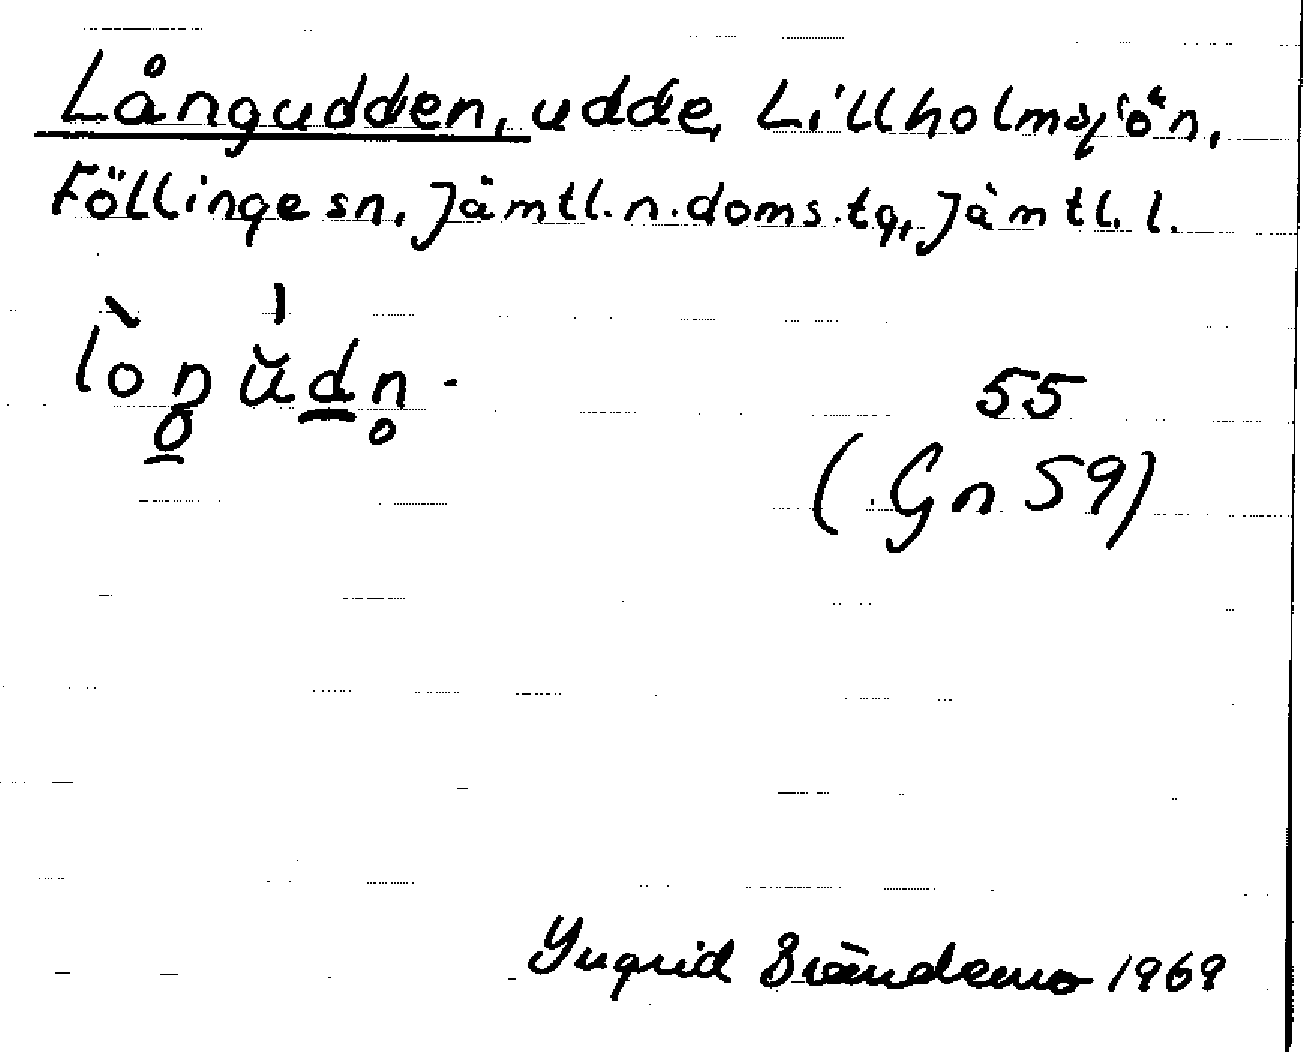 Långudden, udde, Lillholmsjön,
Föllinge sn, Jämtl. n. doms. tg, Jämtl. l.
55
(Gn 59)
Yngrid Brändemo 1969